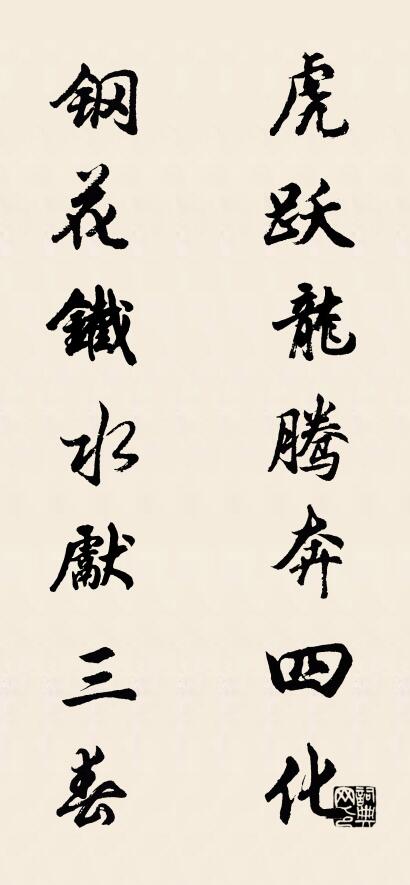 虎跃龍騰奔四化
钢花鐵水獻三春
詞典网